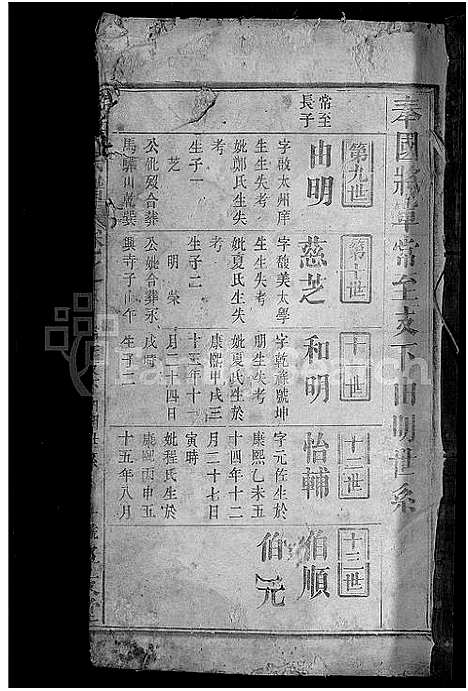 奉國將軍常至支下由明世系
第九世
常至
長子
由明
字啟太州庠
生生失考
妣鄭氏生失
考
生子一
慈芝
公妣歿合葬
馬驊山乾巽
第十世
慈芝
字馥美太學
生生失考
妣夏氏生失
考
生子二
和明 榮
公妣合葬永
興寺子山午
十一世
和明
字乾滌號坤
明生失考
妣夏氏生於
康熙甲戌三
十三年十一
月二十四日
戌時
生子二
十二世
怡輔
字元佐生於
康熙乙未五
十四年十二
月二十七日
寅時
妣程氏生於
康熙丙申五
十五年八月
十三世
伯順
伯元